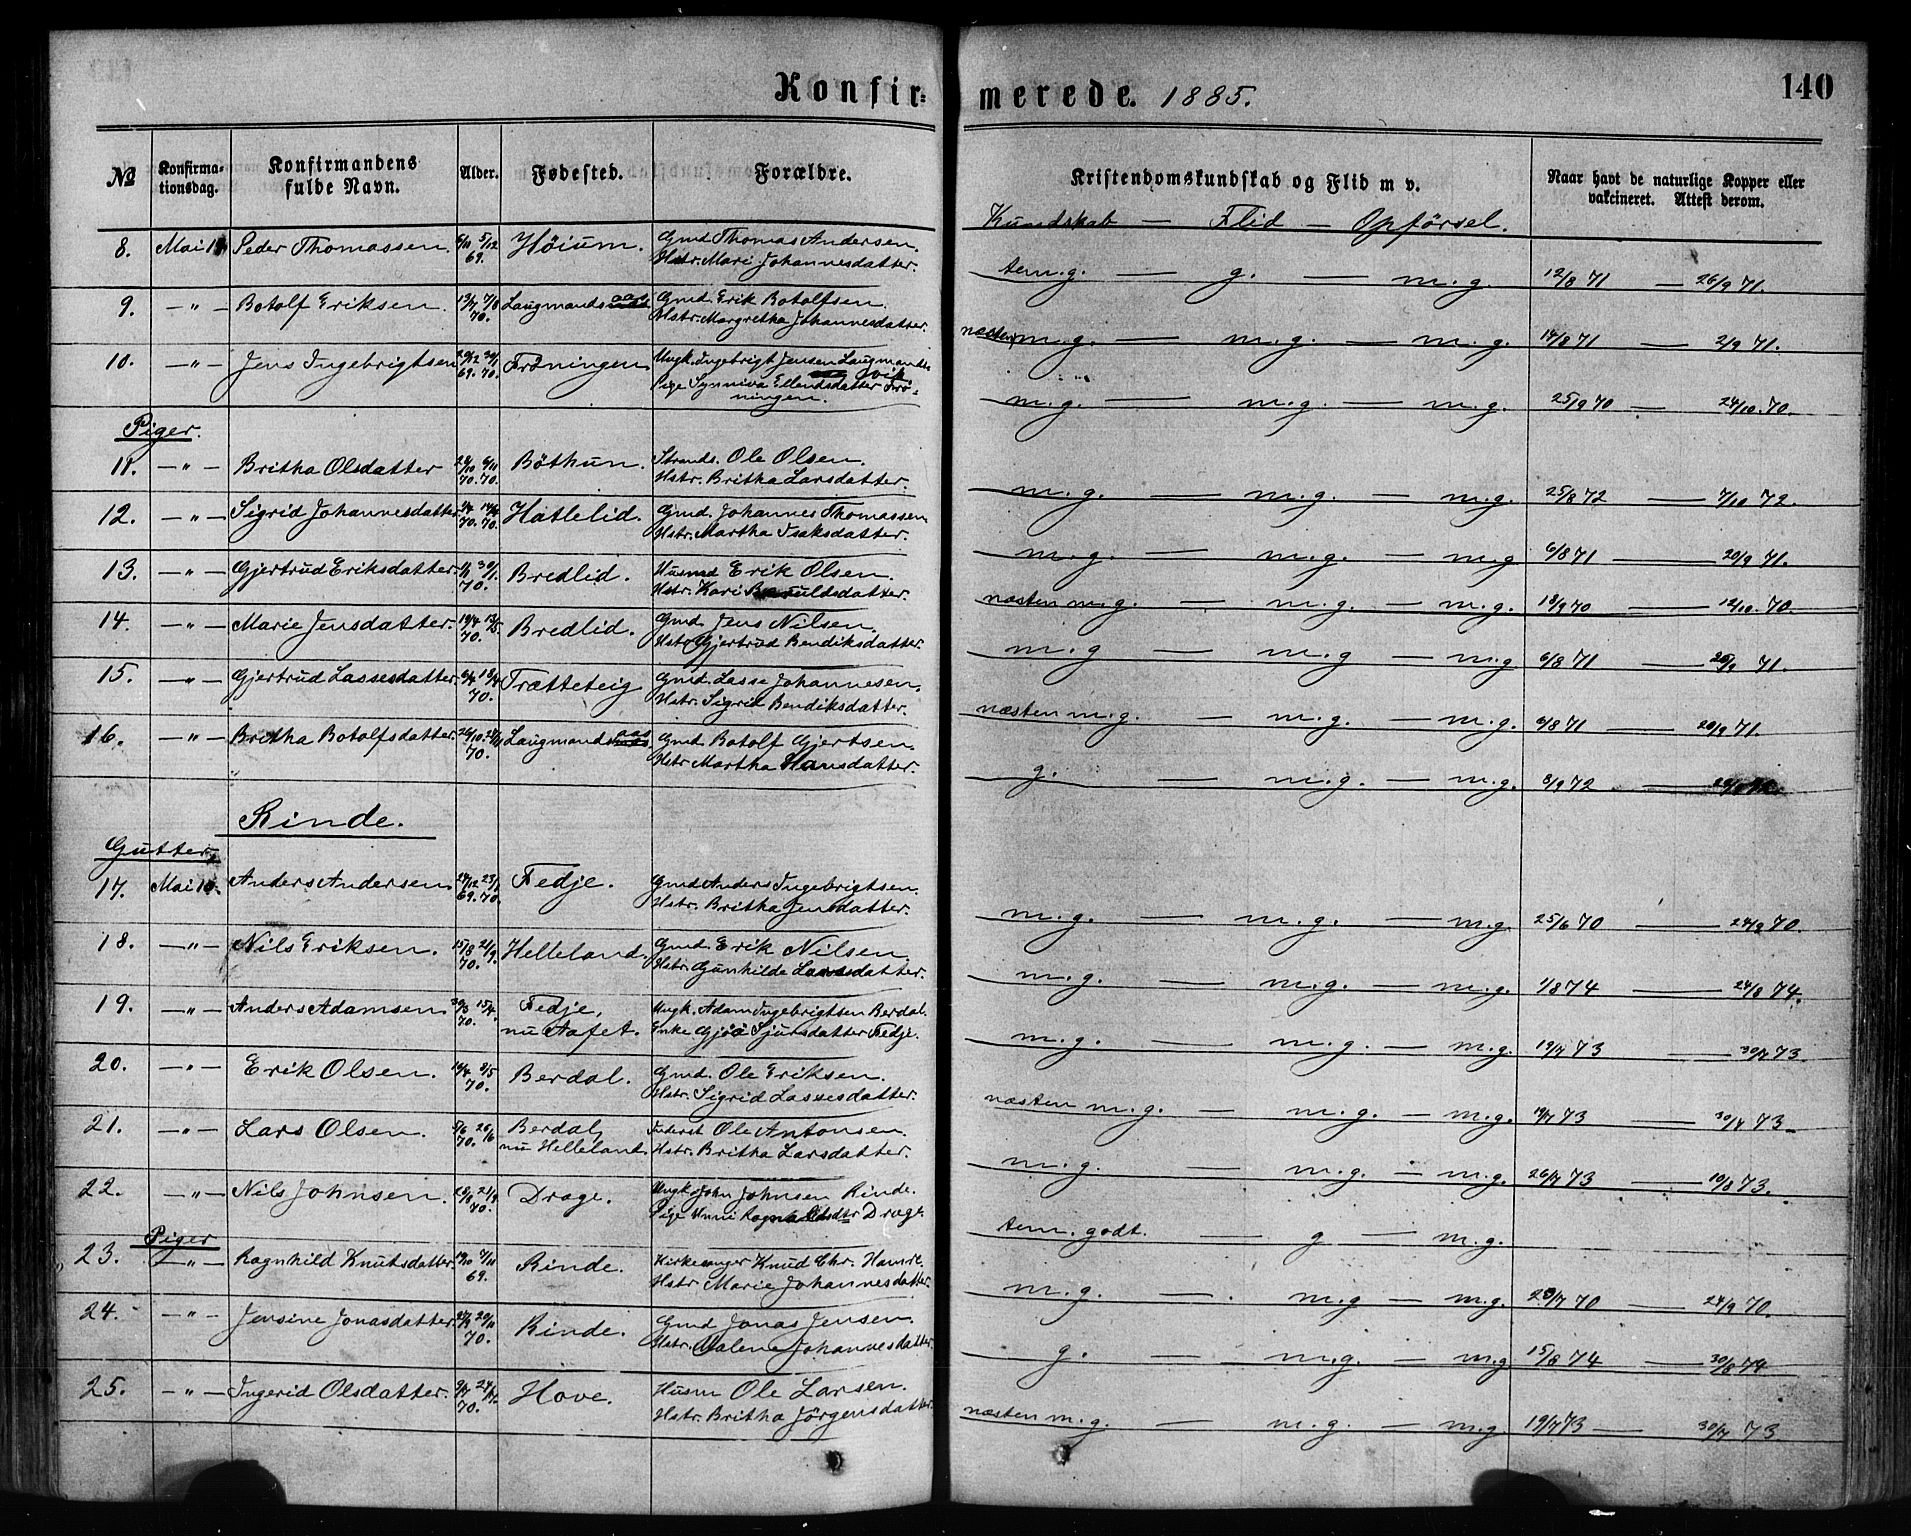 Konfirmerede. 1885. 140
№ Konfirmationsdag. Konfirmandens fulde Navn. Alder. Fødested. Forældre. Kristendomskundskab og Flid m v. Naar havt de naturlige Kopper eller vakcineret. Attest derom.
Kundskab — Flid — Opførsel.
8. Mai Peder Thomassen. 5/12 69. Höium. Gmd Thomas Andersen.
Hstr. Mari Johannesdatter.
tem.g. — g. — m.g. 12/8 71 — 26/9 71.
9. — " — Botolf Eriksen. 13/7 7/8 70. Laugmands Gmd. Erik Botolfsen.
Hstr. Margretha Johannesdatter.
næsten m.g. — m.g. — m.g. 14/8 71 — 2/9 71.
10. — " — Jens Ingebrigtsen 69. 70. Fröningen Ungk. Ingebrigt Jensen Laugmands
vik
Pige Synniva Ellendsdatter Frö-
ningen.
m.g. — m.g. — m.g. 25/9 70 — 24/10. 70.
Piger.
11. — " — Britha Olsdatter 6/11 70. 70. Böthun. Strands. Ole Olsen.
Hstr. Britha Larsdatter.
m.g. — m.g. — m.g. 25/8 72 — 7/10 72.
12. — " — Sigrid Johannesdatter 70. 70. Hatlelid. Gmd. Johannes Thomassen
Hstr. Martha Isaksdatter.
m.g. — m.g. — m.g 6/8 71 — 20/9 71.
13. — " — Gjertrud Eriksdatter. 30/1. 70. Bredlid. Husmd Erik Olsen.
Hstr. Kari
næsten m.g. — m.g. — m.g. 18/9 70 — 12/10. 70.
14. — " — Marie Jensdatter. 19/4 70. Bredlid. Gmd Jens Nilsen.
Hstr. Gjertrud Bendiksdatter.
m.g — m.g — m.g 6/8 71 — 71.
15. — " — Gjertrud Lassesdatter. 18/4 70. Trætteteig Gmd. Lasse Johannesen.
Hstr. Sigrid Bendiksdatter.
næsten m.g. — m.g. — m.g. 6/8 71 — 20/9 71.
16. — " — Britha Botolfsdatter. 26/10 70. Laugmands Gmd Botolf Gjertsen.
Hstr Martha Hansdatter.
g. — m.g. — m.g. 8/9 72
Rinde.
Gutter.
17. Mai Anders Andersen 27/12 23/1 69. 70. Fedje. Gmd Anders Ingebrigtsen.
Hstr. Britha Jensdatter.
m.g. — m.g. — m.g. 25/6 70 — 24/9 70.
18. — " — Nils Eriksen. 15/8 21/9. 70. Helleland. Gmd Erik Nilsen
Hstr. Gunhilde Larsdatter.
m.g. — m.g. — m.g. 1/8 74 — 24/8 74.
19. — " — Anders Adamsen 30/3 15/4. 70. Fedje, Ungk. Adam Ingebrigtsen Berdal.
nu Aafet. Enke Gjöa Sjursdatter Fedje.
m.g. — m.g. — m.g. 19/7 73 — 30/7 73.
20. — " — Erik Olsen. 19/4 9/5 70. Berdal. Gmd. Ole Eriksen.
Hstr. Sigrid Lassesdatter.
næsten m.g. — m.g. — m.g. 73 — 30/7 73
21. — " — Lars Olsen. 5/6 26/6 70. Berdal, Ole Antonsen.
nu Helleland. Hstr. Britha Larsdatter.
m.g. — m.g. — m.g. 26/7 73 — 10/8 73.
22. — " — Nils Johnsen. 28/8 21/9 70. Drage. Ungk John Johnsen Rinde.
Pige Unni Drage
tem. godt. — g — m.g.
Piger
23. — " — Ragnhild Knutsdatter. 19/10 7/11 69. Rinde. Kirkesanger Knud Chr. Hamre.
Hstr Marie Johannesdatter.
m.g. — m.g — m.g. 70 — 24/9 70.
24. — " — Jensine Jonasdatter. 20/11 70. Rinde. Gmd Jonas Jensen.
Hstr. Malene Johannesdatter
g. — m.g. — m.g 15/8 74 — 30/8 74
25. — " — Ingerid Olsdatter. 9/7 24/7. 70. Hove. Husm Ole Larsen.
Hstr. Britha Jörgensdatter.
næsten m.g. — m.g. — m.g. 19/7 73 — 30/7 73